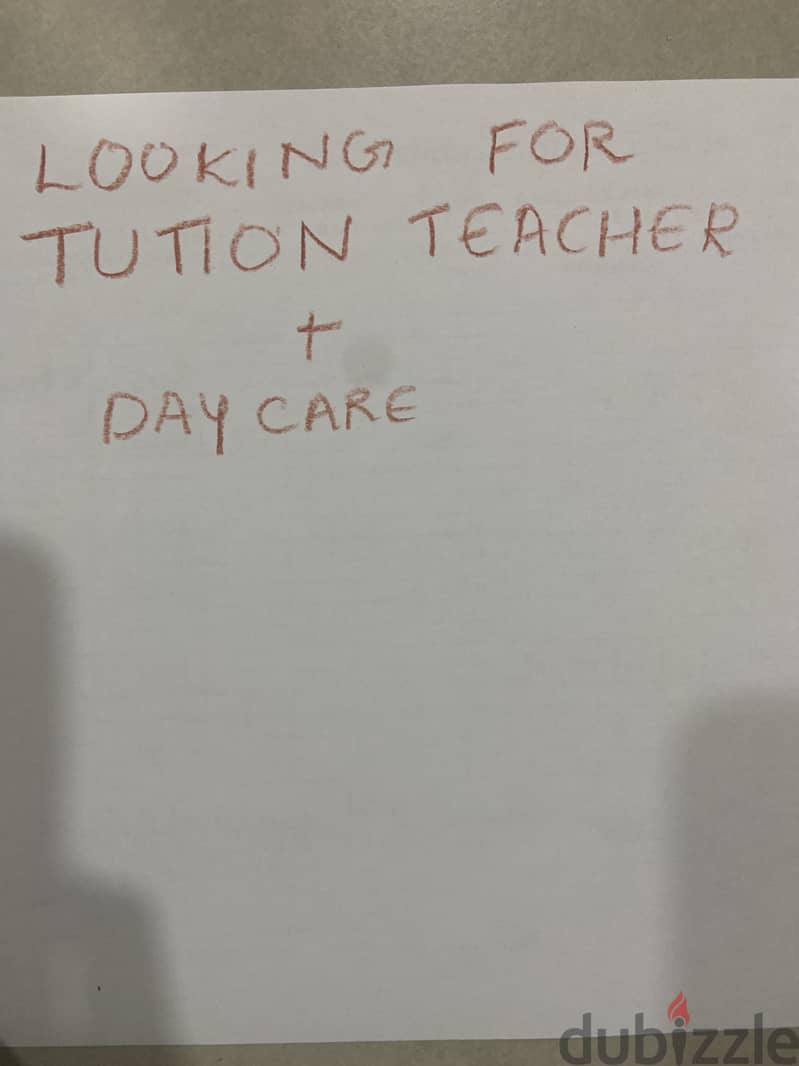 LOOKING FOR
TUTION TEACHER
+
DAY CARE
dubizzle